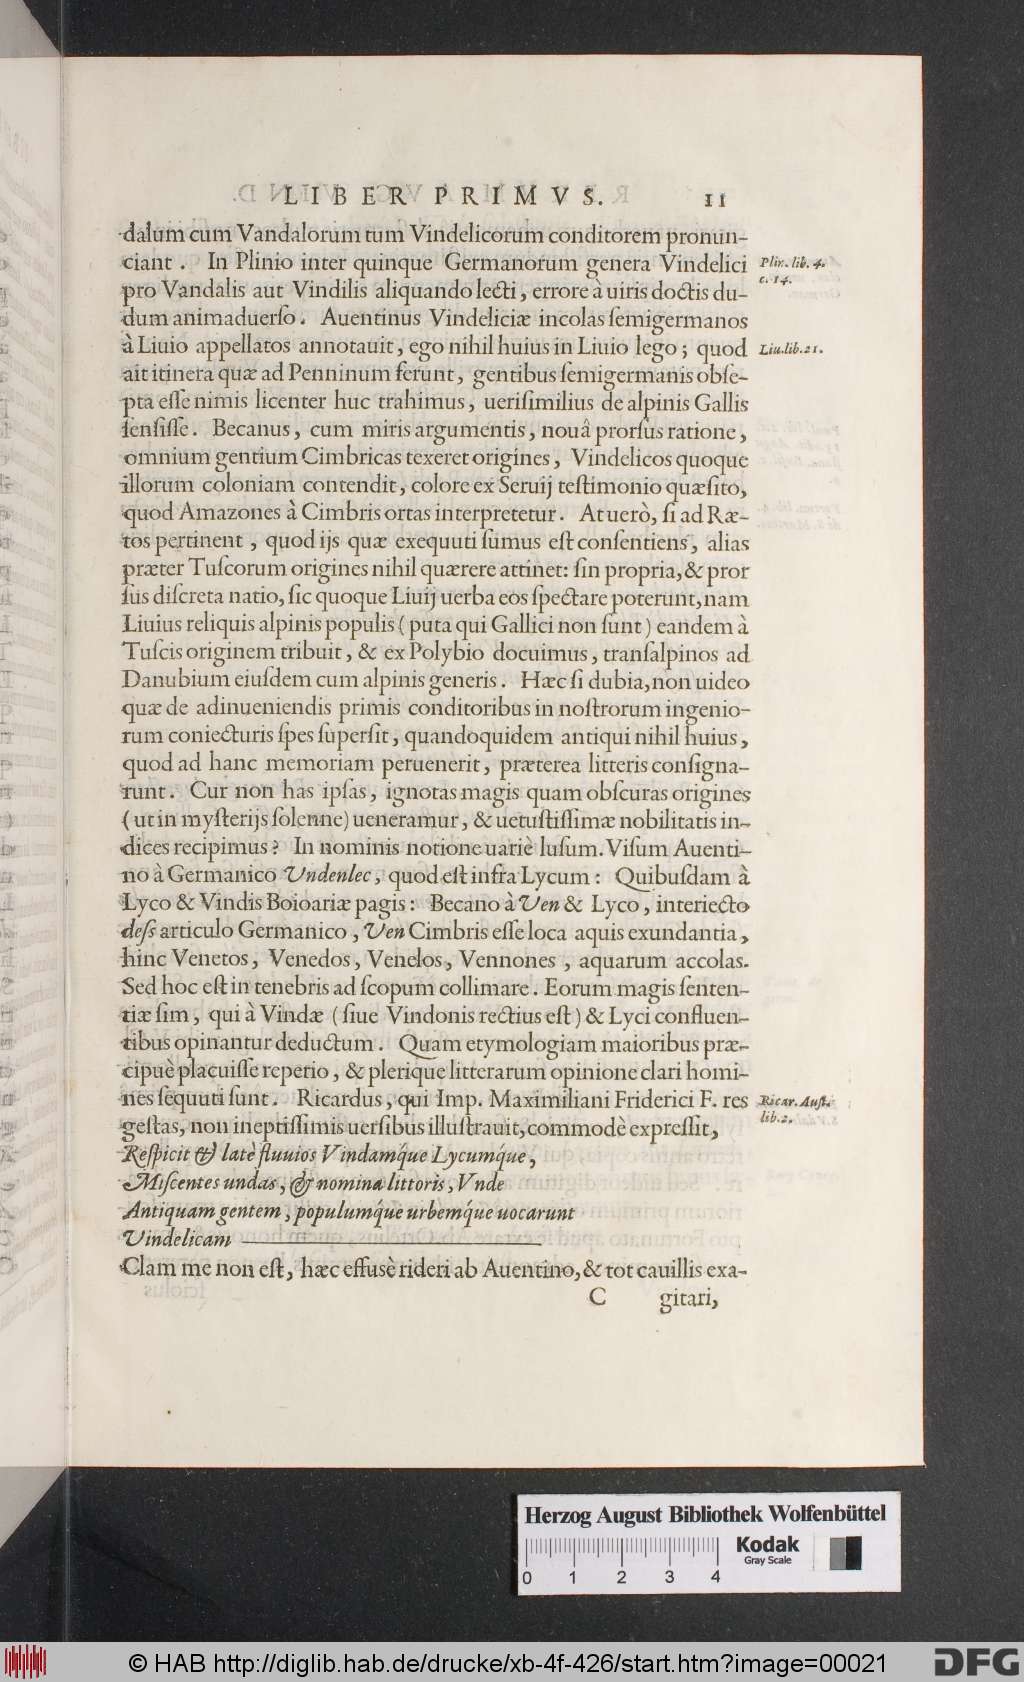 LIBER PRIMVS. 11
dalum cum Vandalorum tum Vindelicorum conditorem pronun-
ciant. In Plinio inter quinque Germanorum genera Vindelici
Plin. lib. 4.
c. 14.
pro Vandalis aut Vindilis aliquando lecti, errore à uiris doctis du-
dum animaduerſo. Auentinus Vindeliciæ incolas ſemigermanos
à Liuio appellatos annotauit, ego nihil huius in Liuio lego; quod
Liu. lib. 21.
ait itinera quæ ad Penninum ferunt, gentibus ſemigermanis obſe-
pta eſſe nimis licenter huc trahimus, ueriſimilius de alpinis Gallis
ſenſiſſe. Becanus, cum miris argumentis, nouâ prorſus ratione,
omnium gentium Cimbricas texeret origines, Vindelicos quoque
illorum coloniam contendit, colore ex Seruij teſtimonio quæſito,
quod Amazones à Cimbris ortas interpretetur. At uerò, ſi ad Ræ-
tos pertinent, quod ijs quæ exequuti ſumus eſt conſentiens, alias
præter Tuſcorum origines nihil quærere attinet: ſin propria, & pror
ſus diſcreta natio, ſic quoque Liuij uerba eos ſpectare poterunt, nam
Liuius reliquis alpinis populis (puta qui Gallici non ſunt) eandem à
Tuſcis originem tribuit, & ex Polybio docuimus, tranſalpinos ad
Danubium eiuſdem cum alpinis generis. Hæc ſi dubia, non uideo
quæ de adinueniendis primis conditoribus in noſtrorum ingenio-
rum coniecturis ſpes ſuperſit, quandoquidem antiqui nihil huius,
quod ad hanc memoriam peruenerit, præterea litteris conſigna-
runt. Cur non has ipſas, ignotas magis quam obſcuras origines
(ut in myſterijs ſolenne) ueneramur, & uetuſtiſſimæ nobilitatis in-
dices recipimus? In nominis notione uariè luſum. Viſum Auenti-
no à Germanico Vndenlec, quod eſt infra Lycum: Quibuſdam â
Lyco & Vindis Boioariæ pagis: Becano à Ven & Lyco, interiecto
deſs articulo Germanico, Ven Cimbris eſſe loca aquis exundantia,
hinc Venetos, Venedos, Venelos, Vennones, aquarum accolas.
Sed hoc eſt in tenebris ad ſcopum collimare. Eorum magis ſenten-
tiæ ſim, qui à Vindæ (ſiue Vindonis rectius eſt) & Lyci confluen-
tibus opinantur deductum. Quam etymologiam maioribus præ-
cipuè placuiſſe reperio, & plerique litterarum opinione clari homi-
nes ſequuti ſunt. Ricardus, qui Imp. Maximiliani Friderici F. res
Ricar. Auſt.
lib. 2.
geſtas, non ineptiſſimis uerſibus illuſtrauit, commodè expreſſit,
Reſpicit & latè fluuios Vindamq́ue Lycumq́ue,
Miſcentes undas, & nomina littoris, Vnde
Antiquam gentem, populumq́ue urbemq́ue uocarunt
Vindelicam
Clam me non eſt, hæc effusè rideri ab Auentino, & tot cauillis exa-
C gitari,
Herzog August Bibliothek Wolfenbüttel
Kodak
Gray Scale
0 1 2 3 4
© HAB http://diglib.hab.de/drucke/xb-4f-426/start.htm?image=00021
DFG